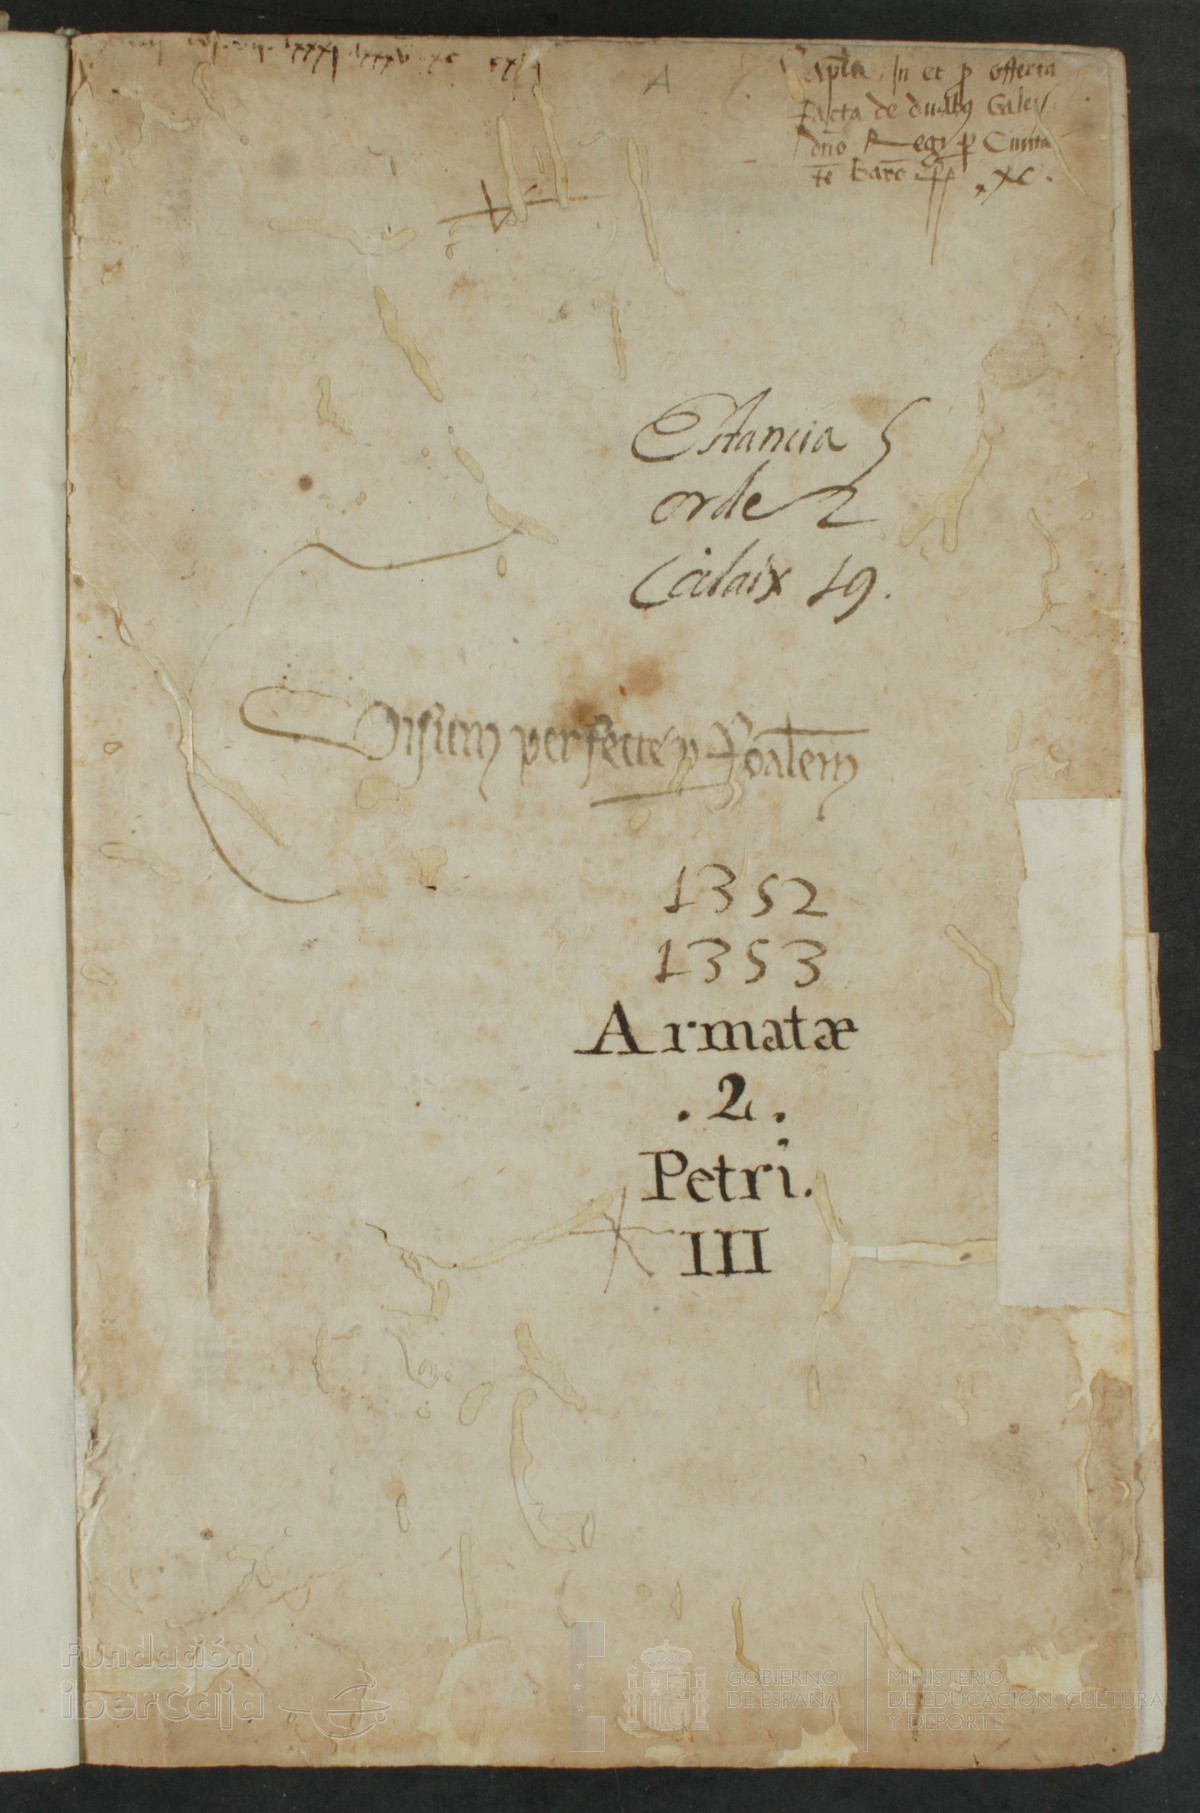 A
Capla. In et p offerta
facta de duabus Galeis
dno Regi p Civita
te Barc xc.
Estancia 5
orde 2
Calaix 19.
Visum perfecte p Foalem
1352
1353
Armatæ
.2.
Petri.
III
Fundación
iberCaja
GOBIERNO
DE ESPAÑA
MINISTERIO
DE EDUCACIÓN, CULTURA
Y DEPORTE